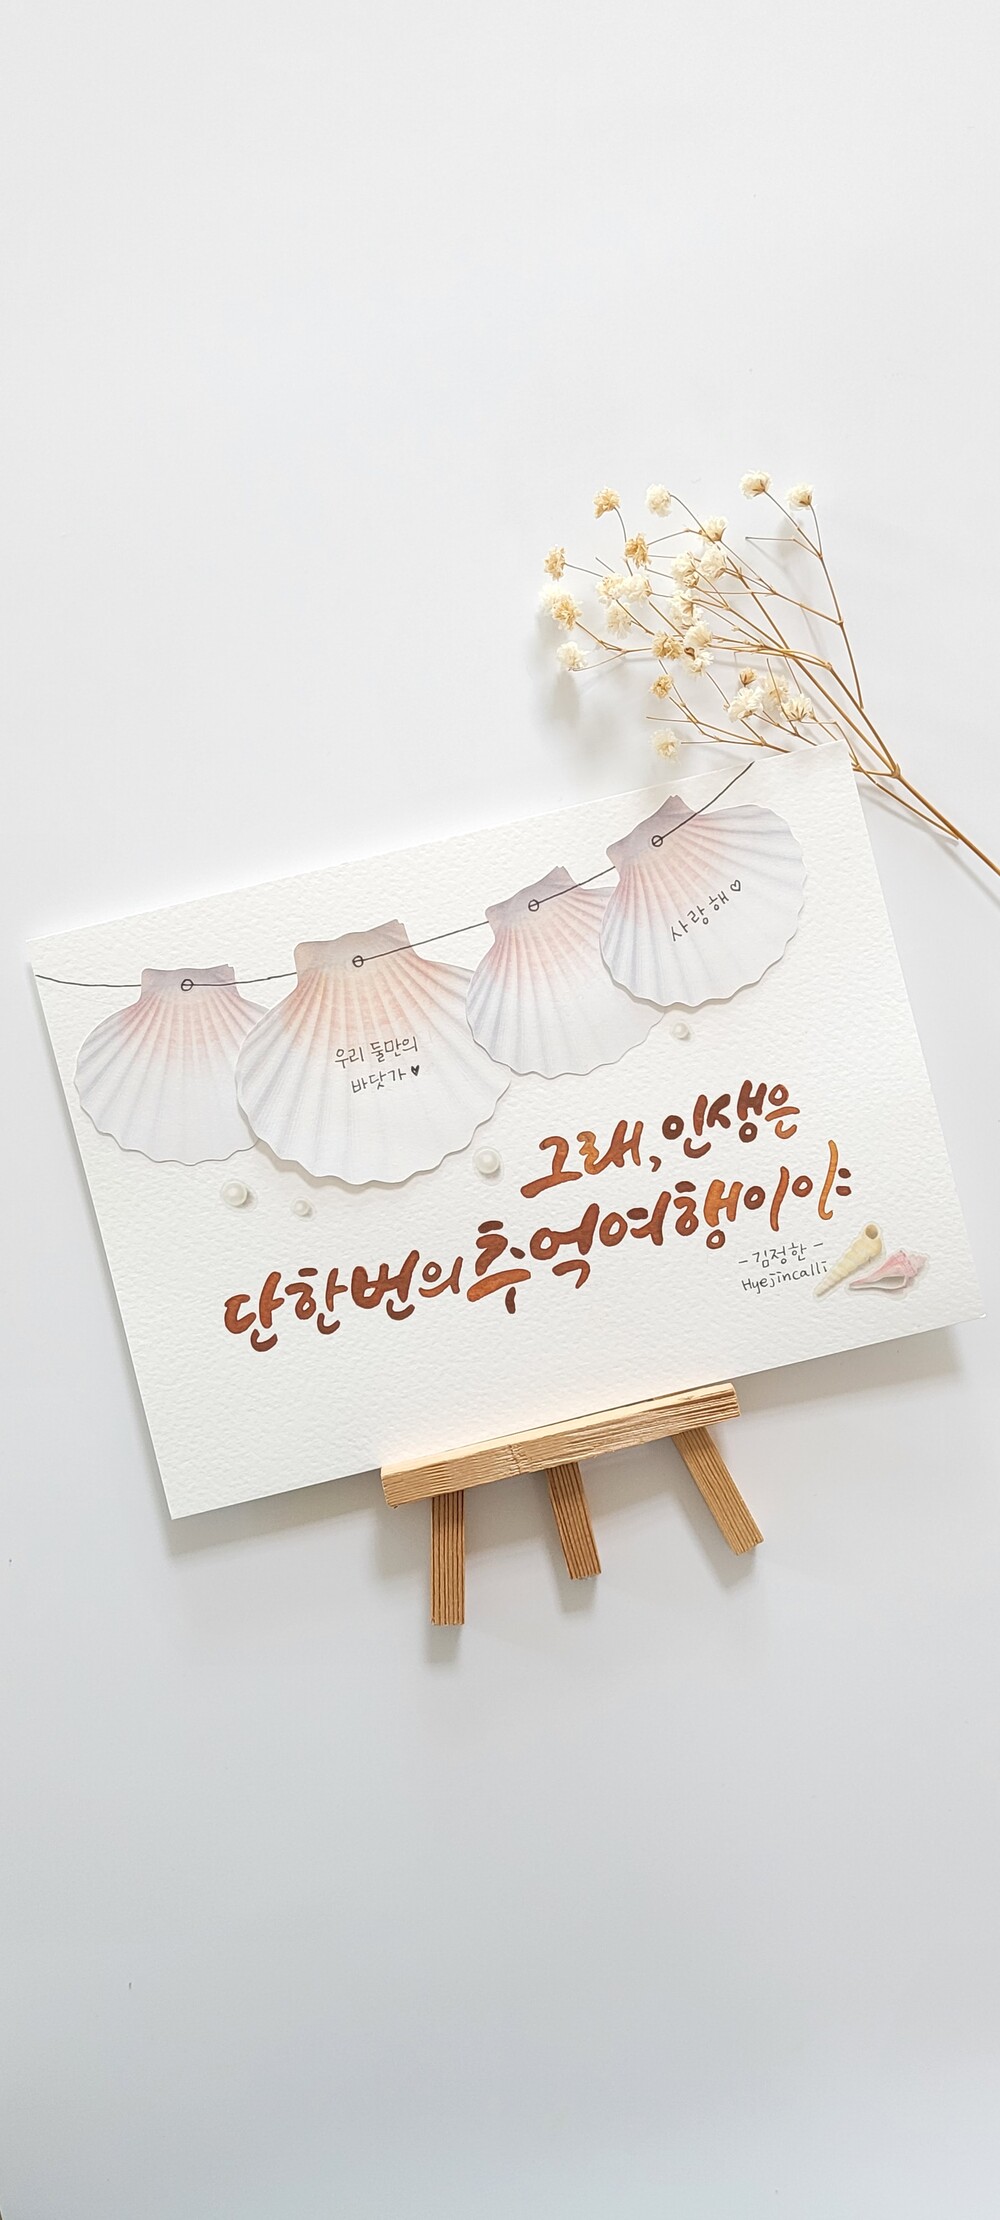 사랑해♡
우리 둘만의
바닷가♥
그래, 인생은
단 한번의 추억여행이야
-김정한-
Hyejincalli